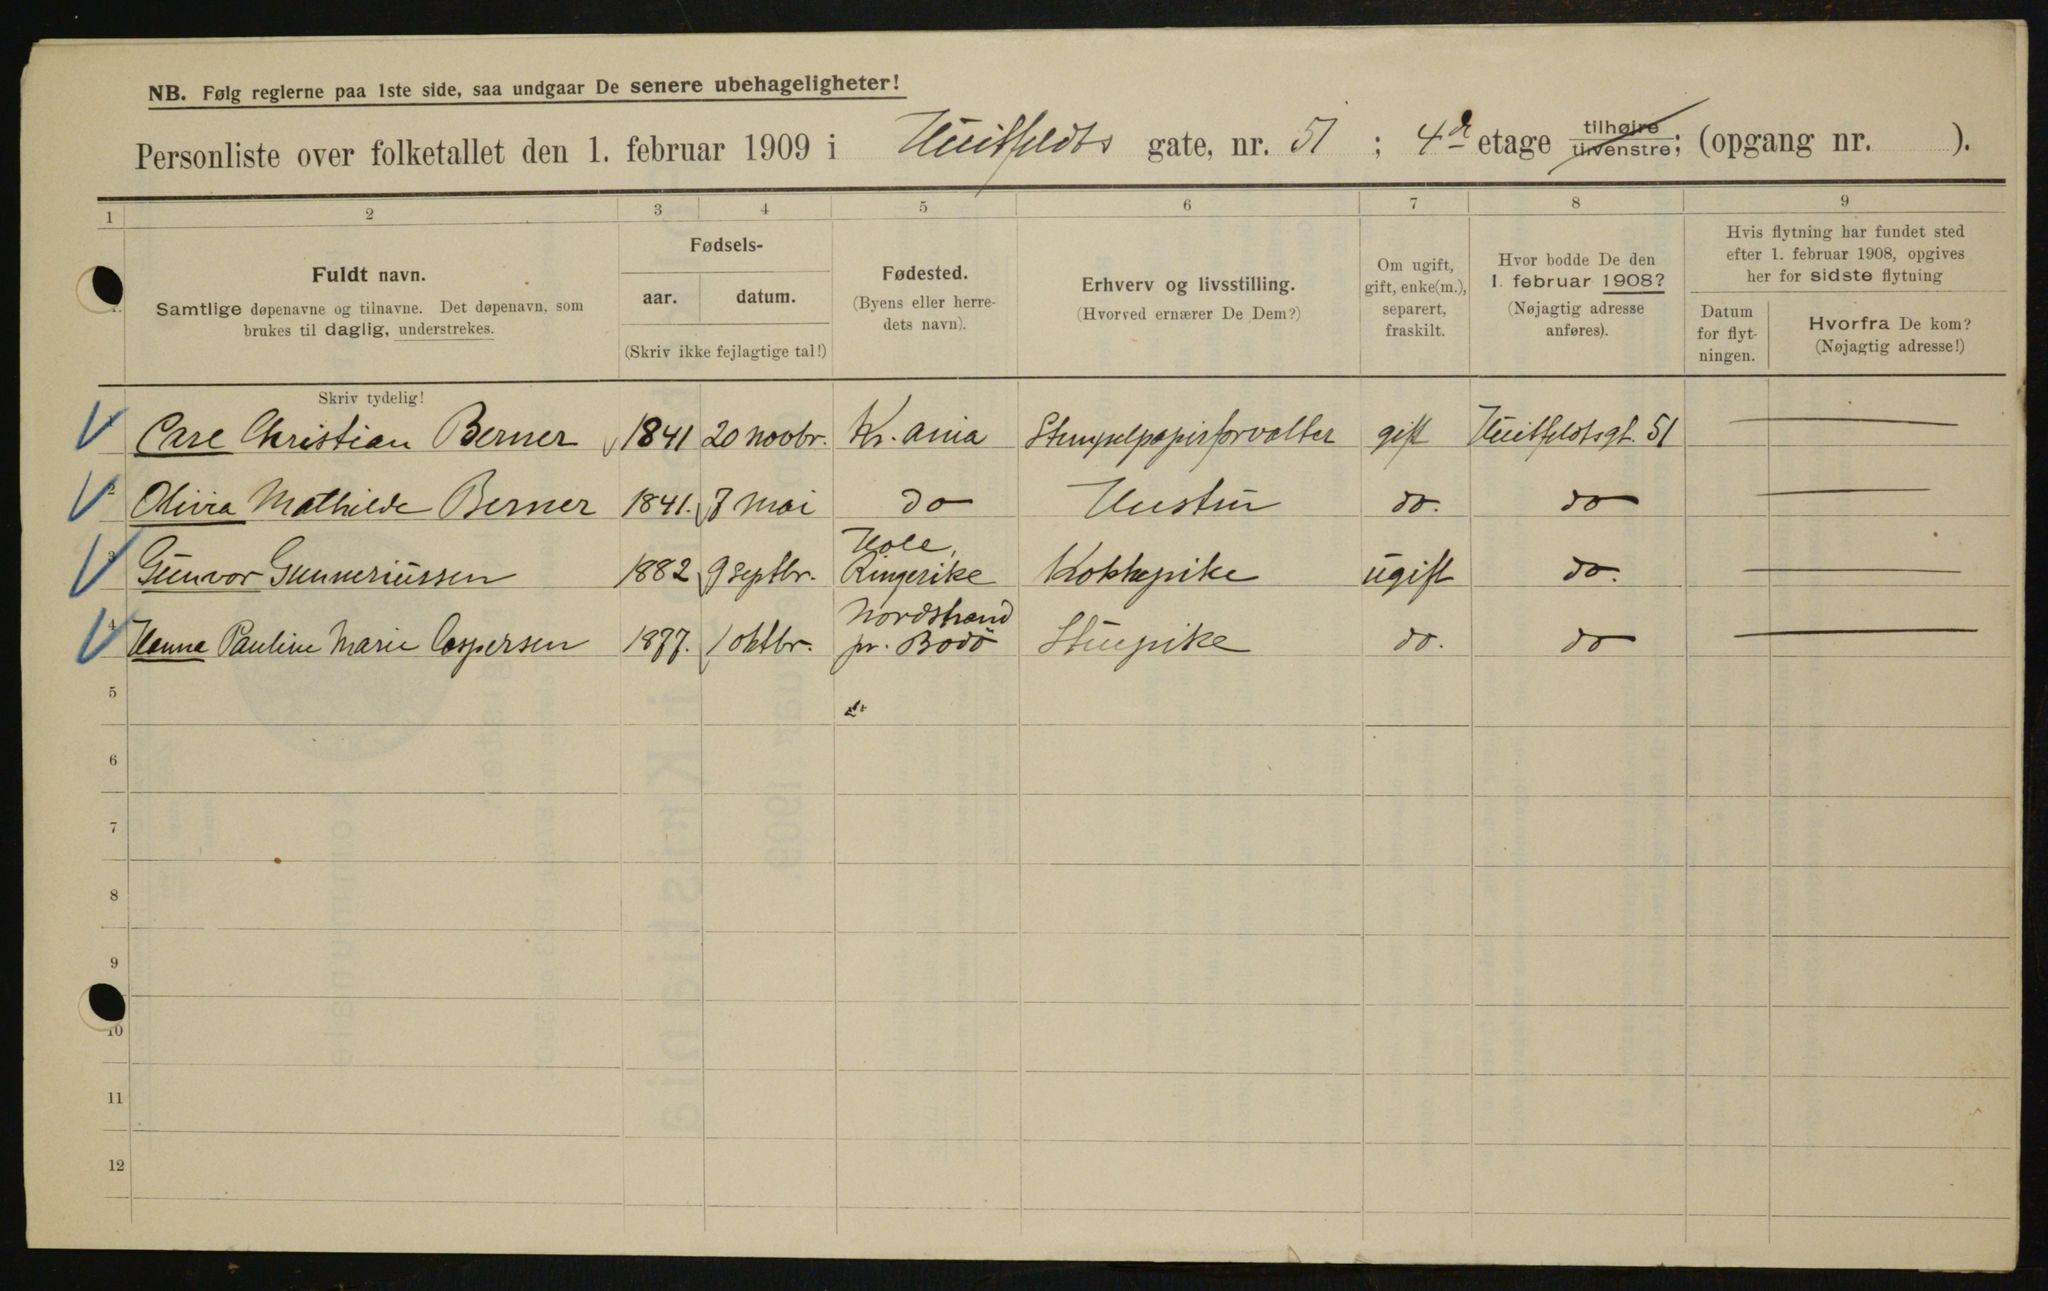 NB. Følg reglerne paa 1ste side, saa undgaar De senere ubehageligheter!
Personliste over folketallet den 1. februar 1909 i Huitfeldts gate, nr. 51 ; 4de etage tilhøire tilvenstre; (opgang nr. ).
1 2 3 4 5 6 7 8 9
Fuldt navn.
Samtlige døpenavne og tilnavne. Det døpenavn, som
brukes til daglig, understrekes.
Fødsels-
aar. datum.
(Skriv ikke fejlagtige tal!)
Fødested.
(Byens eller herre-
dets navn).
Erhverv og livsstilling.
(Hvorved ernærer De Dem?)
Om ugift,
gift, enke(m.),
separert,
fraskilt.
Hvor bodde De den
1. februar 1908?
(Nøjagtig adresse
anføres).
Hvis flytning har fundet sted
efter 1. februar 1908, opgives
her for sidste flytning
Datum
for flyt-
ningen.
Hvorfra De kom?
(Nøjagtig adresse!)
Skriv tydelig!
Carl Christian Berner 1841 20 novbr. Kr.ania Stempelpapirforvalter gift Huitfeldtsgt. 51
2 Olivia Mathilde Berner 1841. 7 mai do Hustru do. do
3 Gunvor Gunneriussen 1882 9 septbr. Hole, Ringerike Kokkepike ugift do.
4 Hanna Pauline Marie Caspersen 1877. 1 oktbr. Nordstrand pr. Bodö Stuepike do. do
5
6
7
8
9
10
11
12